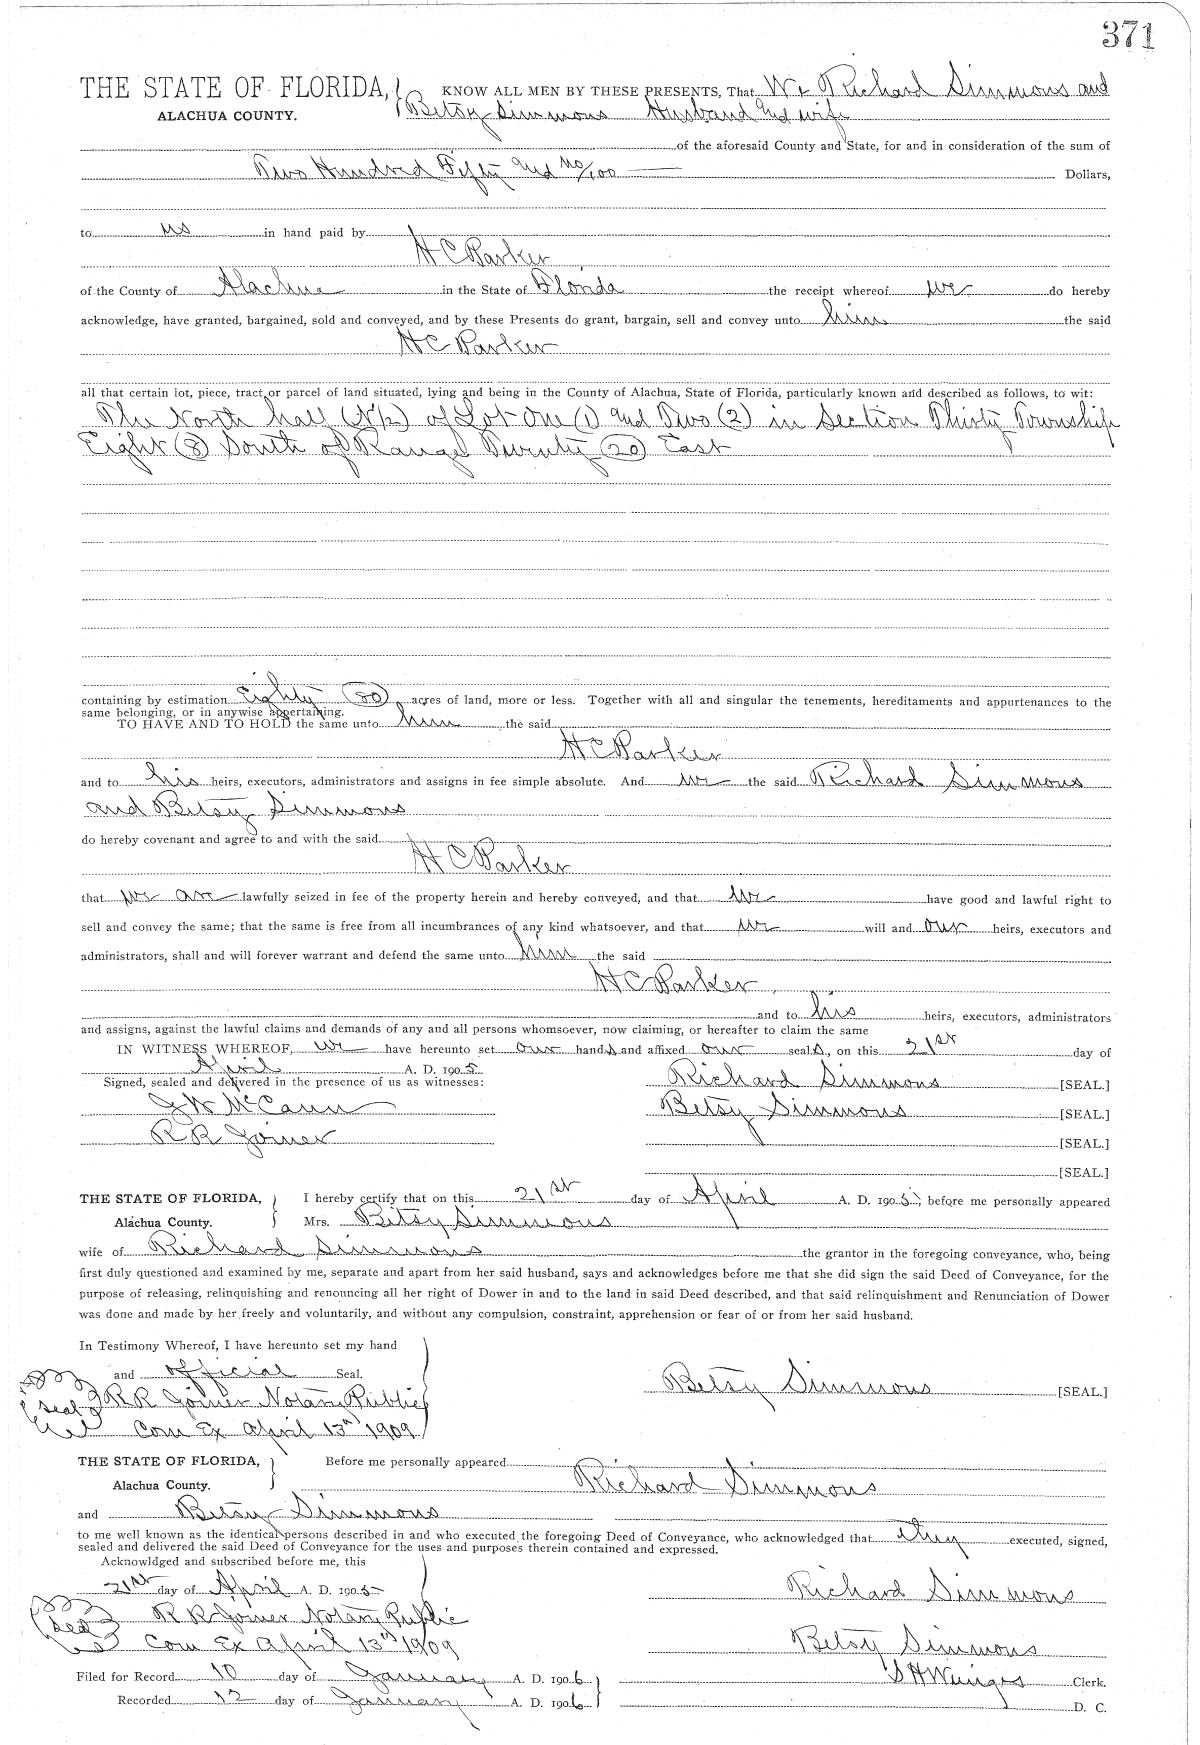 371
THE STATE OF FLORIDA, KNOW ALL MEN BY THESE PRESENTS, That We Richard Simmons and
ALACHUA COUNTY. Betsy Simmons Husband and wife
of the aforesaid County and State, for and in consideration of the sum of
Two Hundred Fifty and no/100 Dollars,
to us in hand paid by
H C Parker
of the County of Alachua in the State of Florida the receipt whereof we do hereby
acknowledge, have granted, bargained, sold and conveyed, and by these Presents do grant, bargain, sell and convey unto him the said
H C Parker
all that certain lot, piece, tract or parcel of land situated, lying and being in the County of Alachua, State of Florida, particularly known and described as follows, to wit:
The North half (N½) of Lot One (1) and Two (2) in Section Thirty Township
Eight (8) South of Range Twenty (20) East
containing by estimation Eighty (80) acres of land, more or less. Together with all and singular the tenements, hereditaments and appurtenances to the
same belonging, or in anywise appertaining.
TO HAVE AND TO HOLD the same unto him the said
H C Parker
and to his heirs, executors, administrators and assigns in fee simple absolute. And we the said Richard Simmons
and Betsy Simmons
do hereby covenant and agree to and with the said
H C Parker
that we are lawfully seized in fee of the property herein and hereby conveyed, and that we have good and lawful right to
sell and convey the same; that the same is free from all incumbrances of any kind whatsoever, and that we will and our heirs, executors and
administrators, shall and will forever warrant and defend the same unto him the said
H C Parker
and to his heirs, executors, administrators
and assigns, against the lawful claims and demands of any and all persons whomsoever, now claiming, or hereafter to claim the same
IN WITNESS WHEREOF, we have hereunto set our hands and affixed our seals, on this 21st day of
April A. D. 1905
Signed, sealed and delivered in the presence of us as witnesses: Richard Simmons [SEAL.]
J W McCann Betsy Simmons [SEAL.]
R R Joiner [SEAL.]
[SEAL.]
THE STATE OF FLORIDA, I hereby certify that on this 21st day of April A. D. 1905, before me personally appeared
Alachua County. Mrs. Betsy Simmons
wife of Richard Simmons the grantor in the foregoing conveyance, who, being
first duly questioned and examined by me, separate and apart from her said husband, says and acknowledges before me that she did sign the said Deed of Conveyance, for the
purpose of releasing, relinquishing and renouncing all her right of Dower in and to the land in said Deed described, and that said relinquishment and Renunciation of Dower
was done and made by her freely and voluntarily, and without any compulsion, constraint, apprehension or fear of or from her said husband.
In Testimony Whereof, I have hereunto set my hand
and official Seal. Betsy Simmons [SEAL.]
seal R R Joiner Notary Public
Com Ex April 13th 1909
THE STATE OF FLORIDA, Before me personally appeared
Alachua County. Richard Simmons
and Betsy Simmons
to me well known as the identical persons described in and who executed the foregoing Deed of Conveyance, who acknowledged that they executed, signed,
sealed and delivered the said Deed of Conveyance for the uses and purposes therein contained and expressed.
Acknowldged and subscribed before me, this
21st day of April A. D. 1905 Richard Simmons
seal R R Joiner Notary Public
Com Ex April 13th 1909 Betsy Simmons
Filed for Record 10 day of January A. D. 1906 S H Wienges Clerk.
Recorded 12 day of January A. D. 1906 D. C.